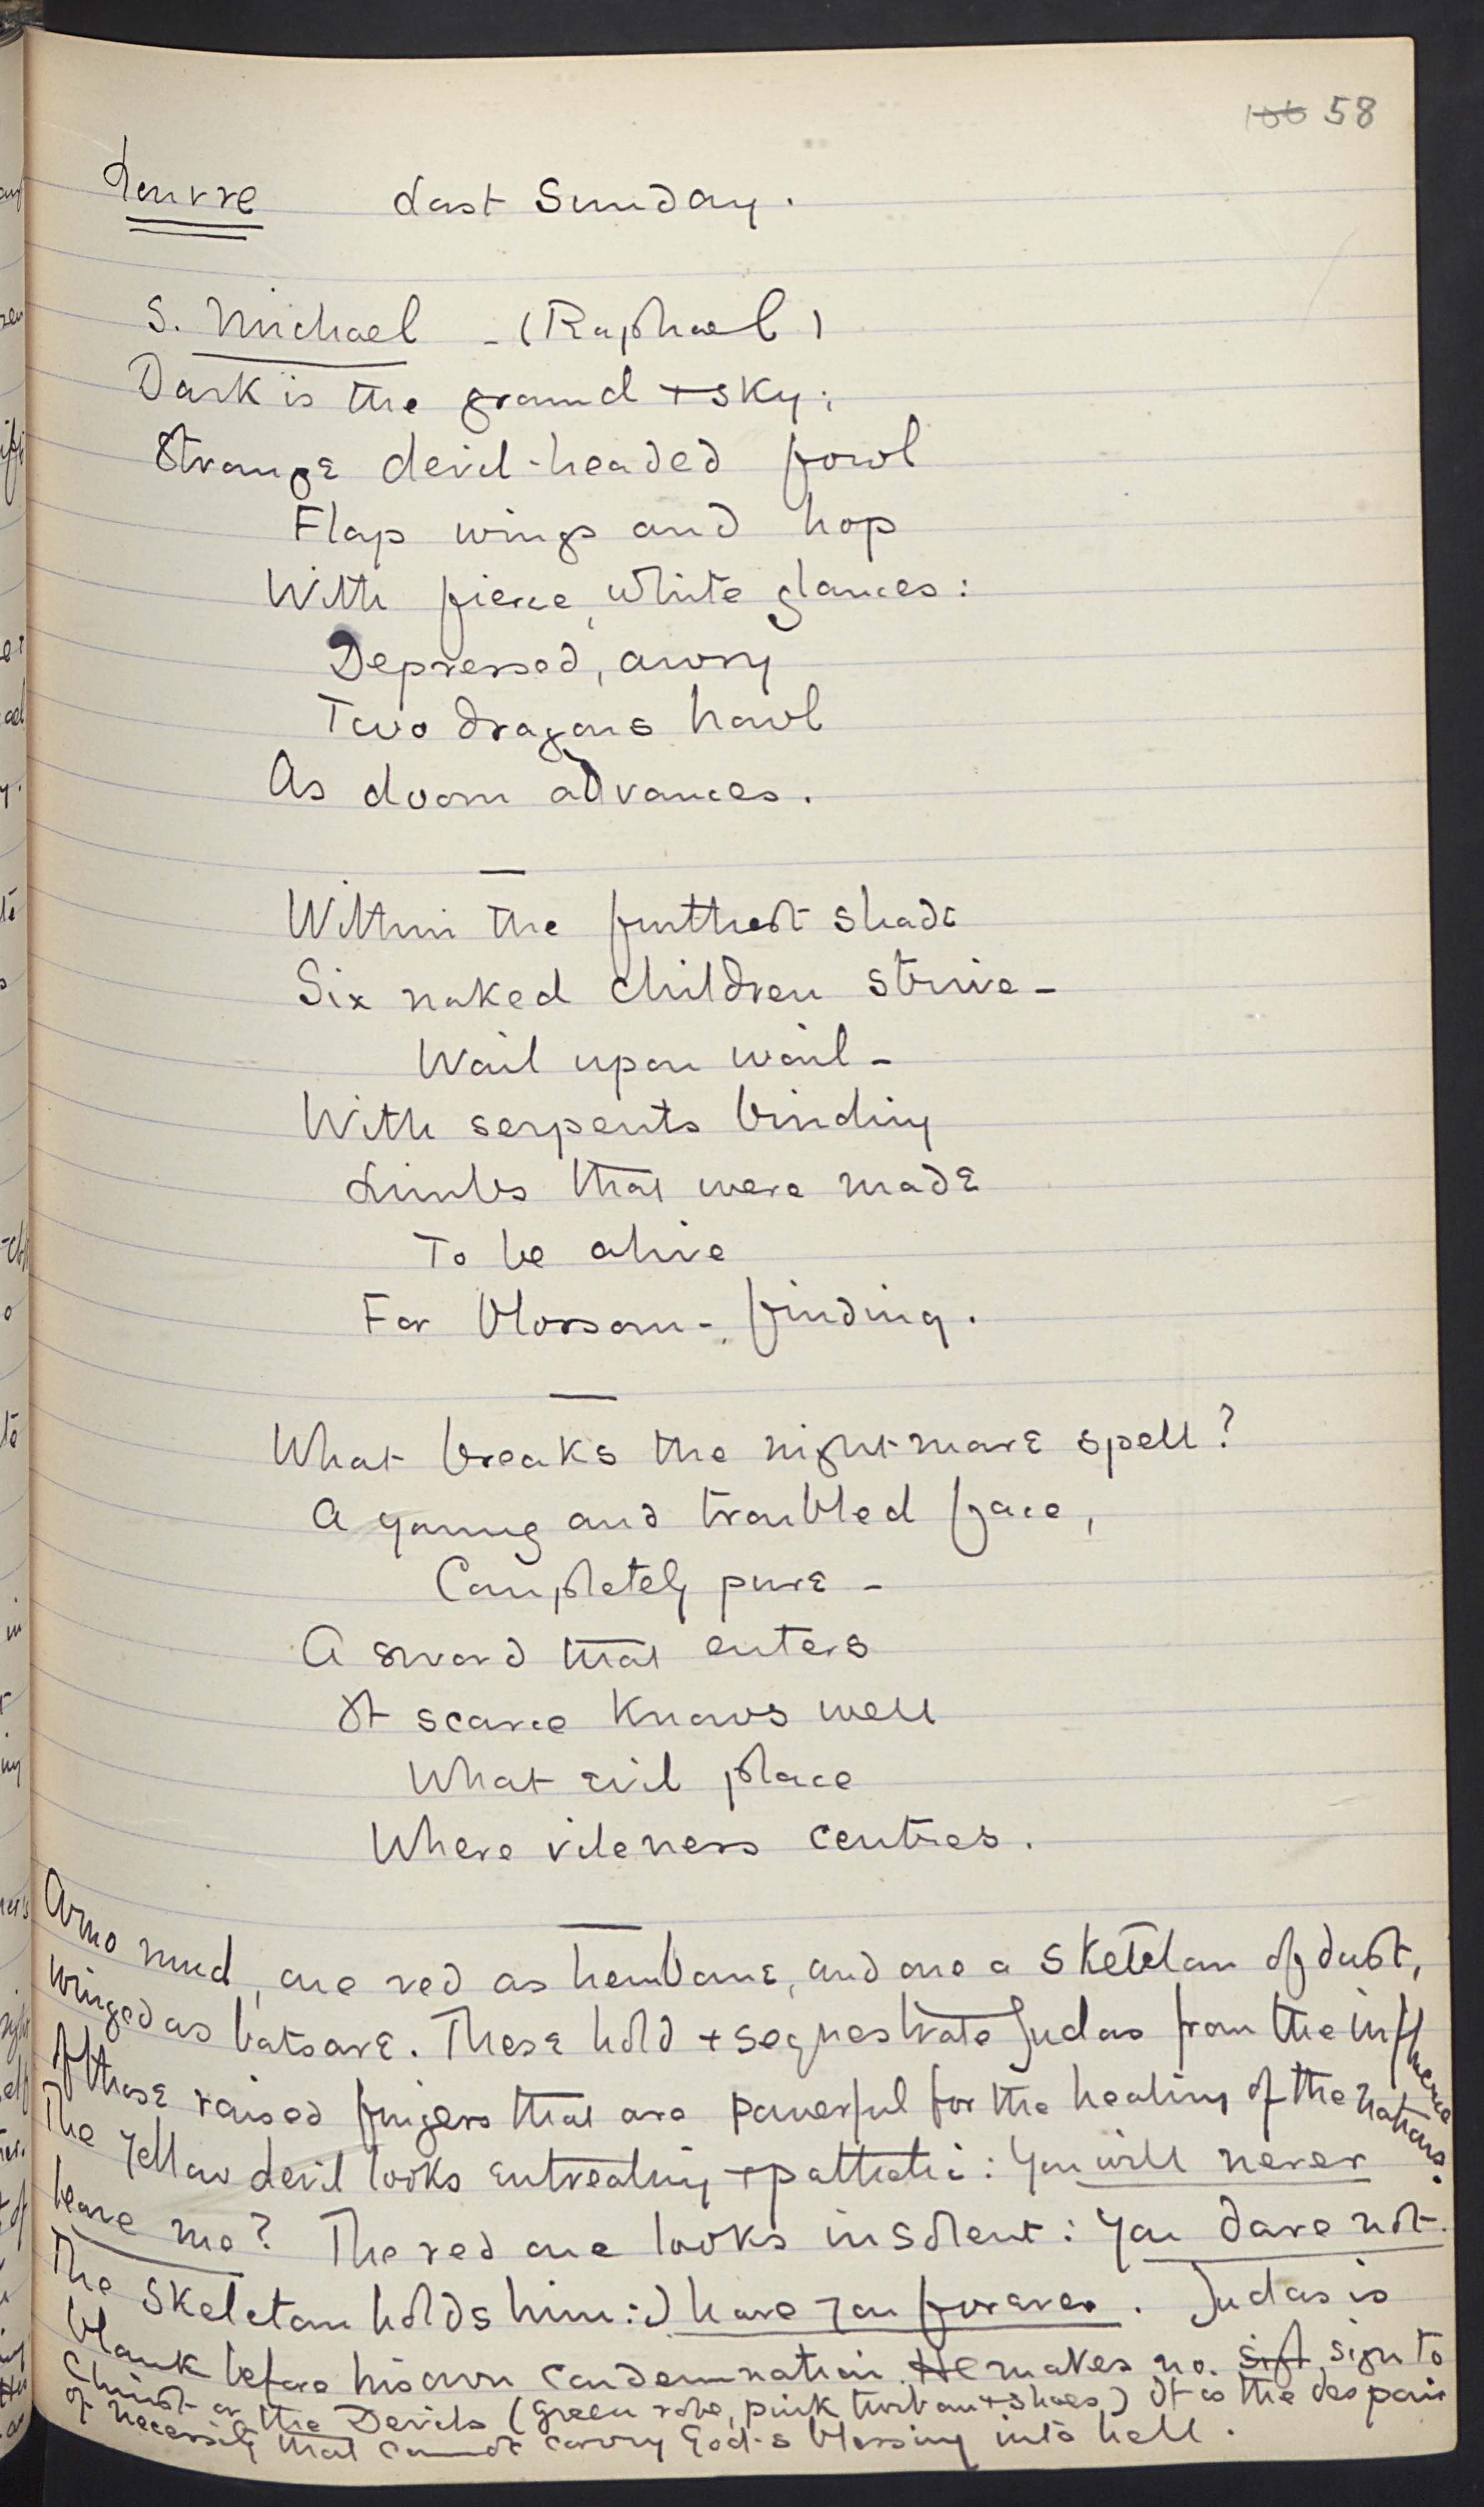 106 58
Louvre Last Sunday.
S. Michael - (Raphael)
Dark is the ground + sky;
Strange devil-headed fowl
Flap wings and hop
With fierce, white glances:
Depressed, awry
Two dragons howl
As doom advances.
Within the furthest shade
Six naked children strive -
Wail upon wail -
With serpents binding
Limbs that were made
To be alive
For blossom-finding.
What breaks the nightmare spell?
A young and troubled face,
Completely pure -
A sword that enters
It scarce knows well
What evil place
Where vileness centres.
Arno mud, one red as henbane, and one a skeleton of dust,
winged as bats are. These hold + sequestrate Judas from the influence
of those raised fingers that are powerful for the healing of the nations.
The yellow devil looks entreating + pathetic: You will never
leave me? The red one looks insolent: You dare not.
The skeleton holds him: I have you forever. Judas is
blank before his own condemnation. He makes no. sift sign to
Christ or the Devils (green robe, pink turban + shoes) It is the despair
of necessity that cannot carry God's blessing into hell.